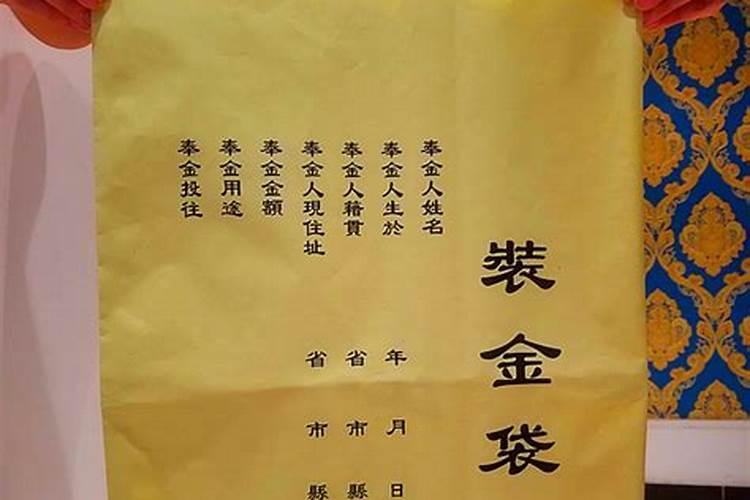 裝金袋
奉金人姓名
奉金人生於 年 月 日
奉金人籍貫 省 市 縣
奉金人現住址 省 市 縣
奉金金額
奉金用途
奉金投往